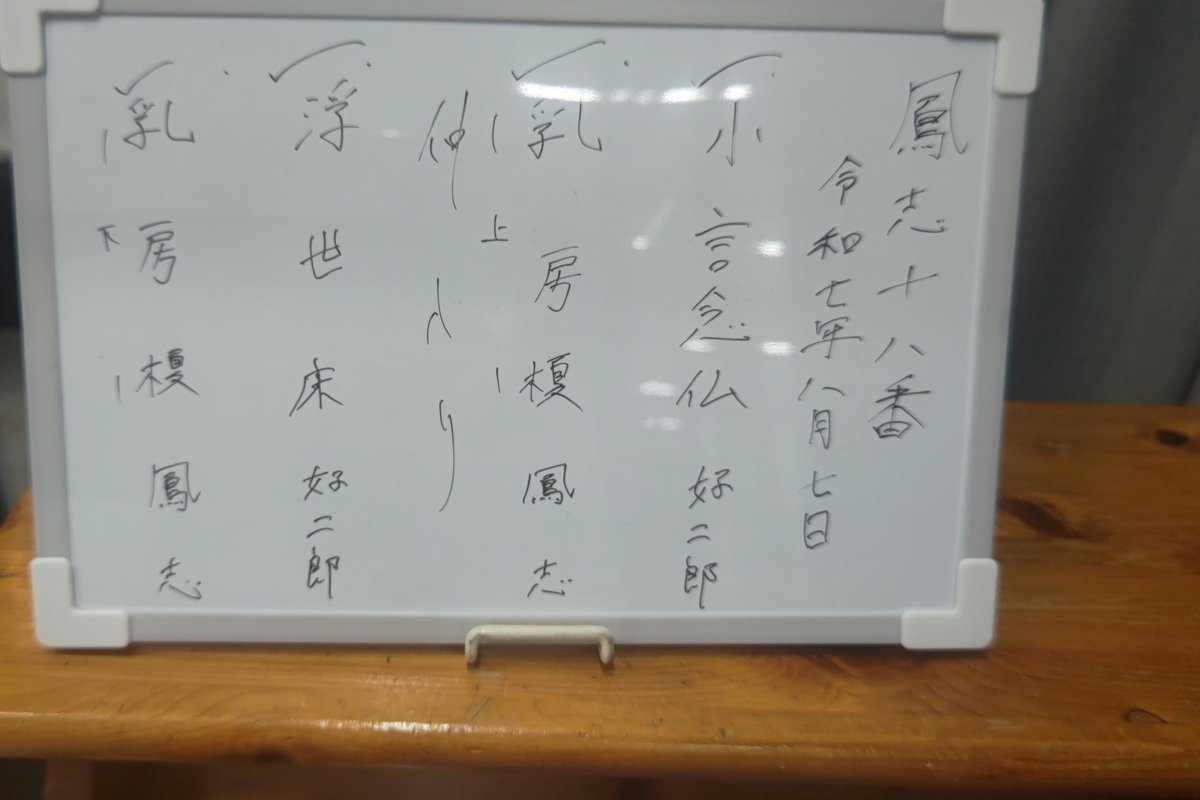 鳳志十八番
令和七年八月七日
小言念仏 好二郎
乳房榎 上 鳳志
仲入り
浮世床 好二郎
乳房榎 下 鳳志